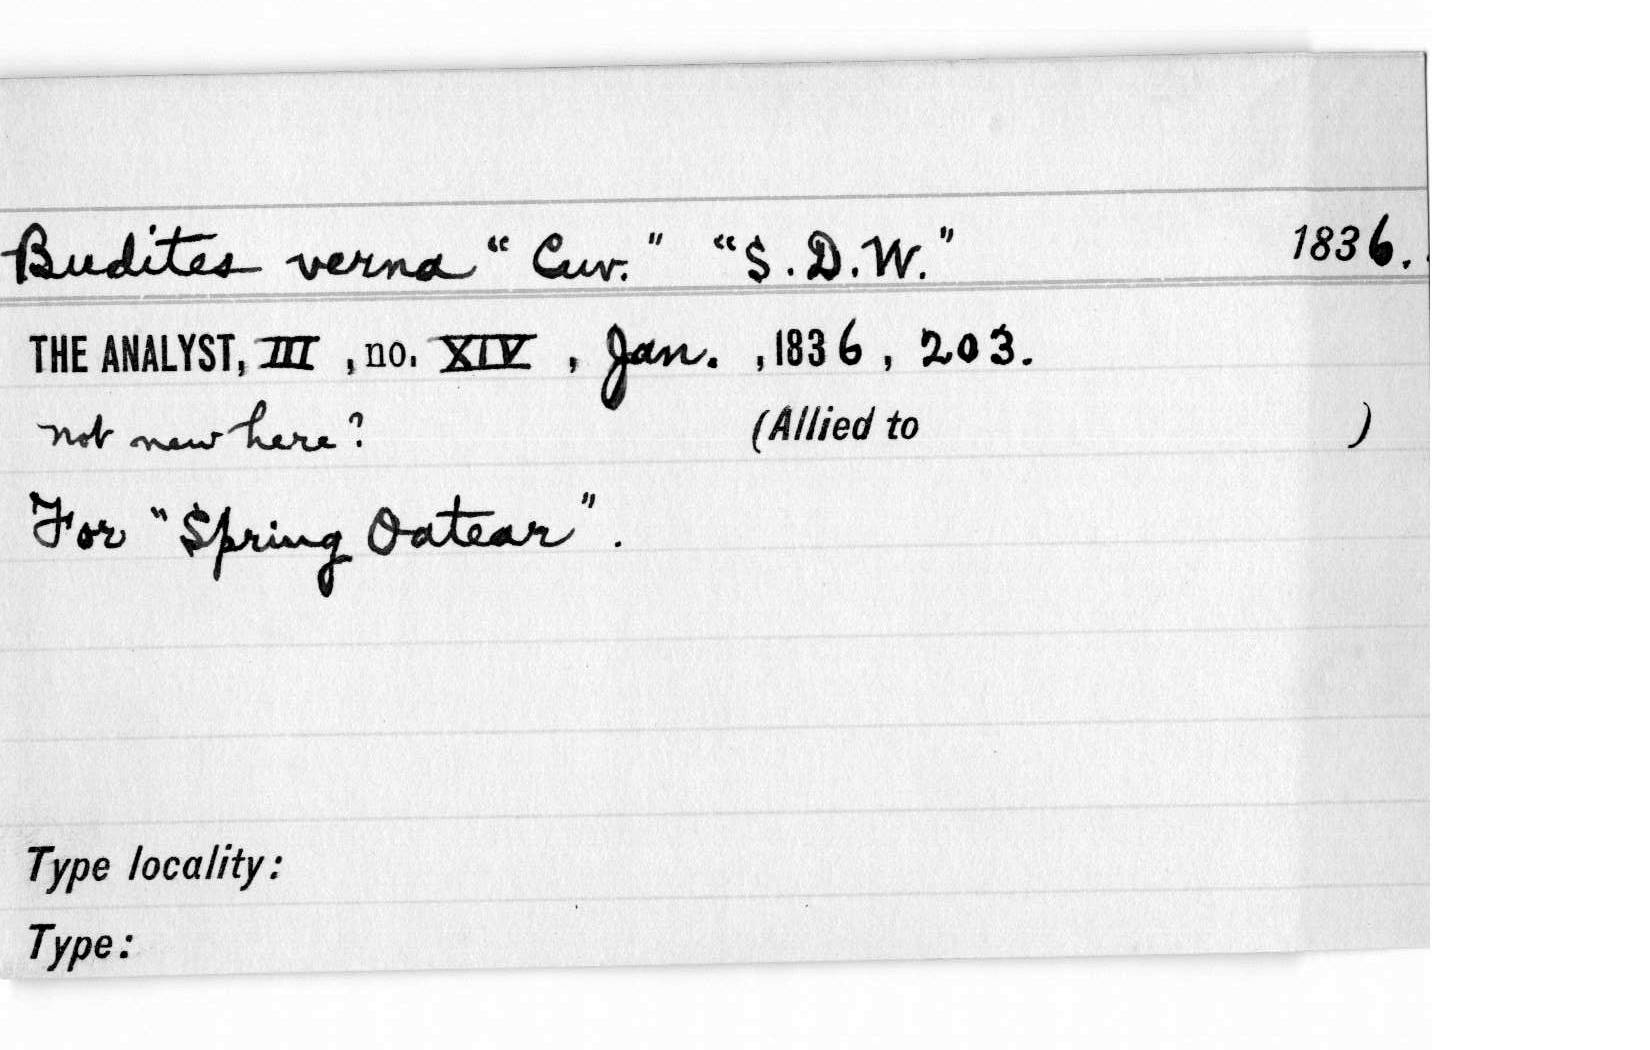 Budites verna "Cuv." "S.D.W." 1836.
THE ANALYST, III, no. XIV, Jan., 1836, 203.
not new here? (Allied to )
For "Spring Oatear".
Type locality:
Type: